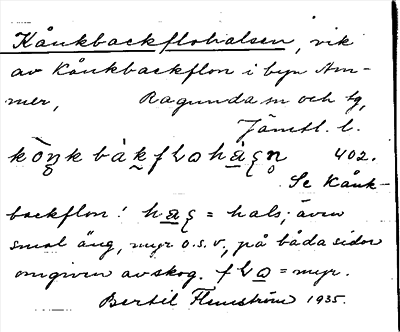 Kånkbackflohalsen, vik
av Kånkbackflon i byn Am-
mer, Ragunda sn och tg,
Jämtl. l.
402.
Se Kånk-
backflon! = hals; även
smal äng, myr o.s.v., på båda sidor
omgiven av skog. = myr.
Bertil Flemström 1935.